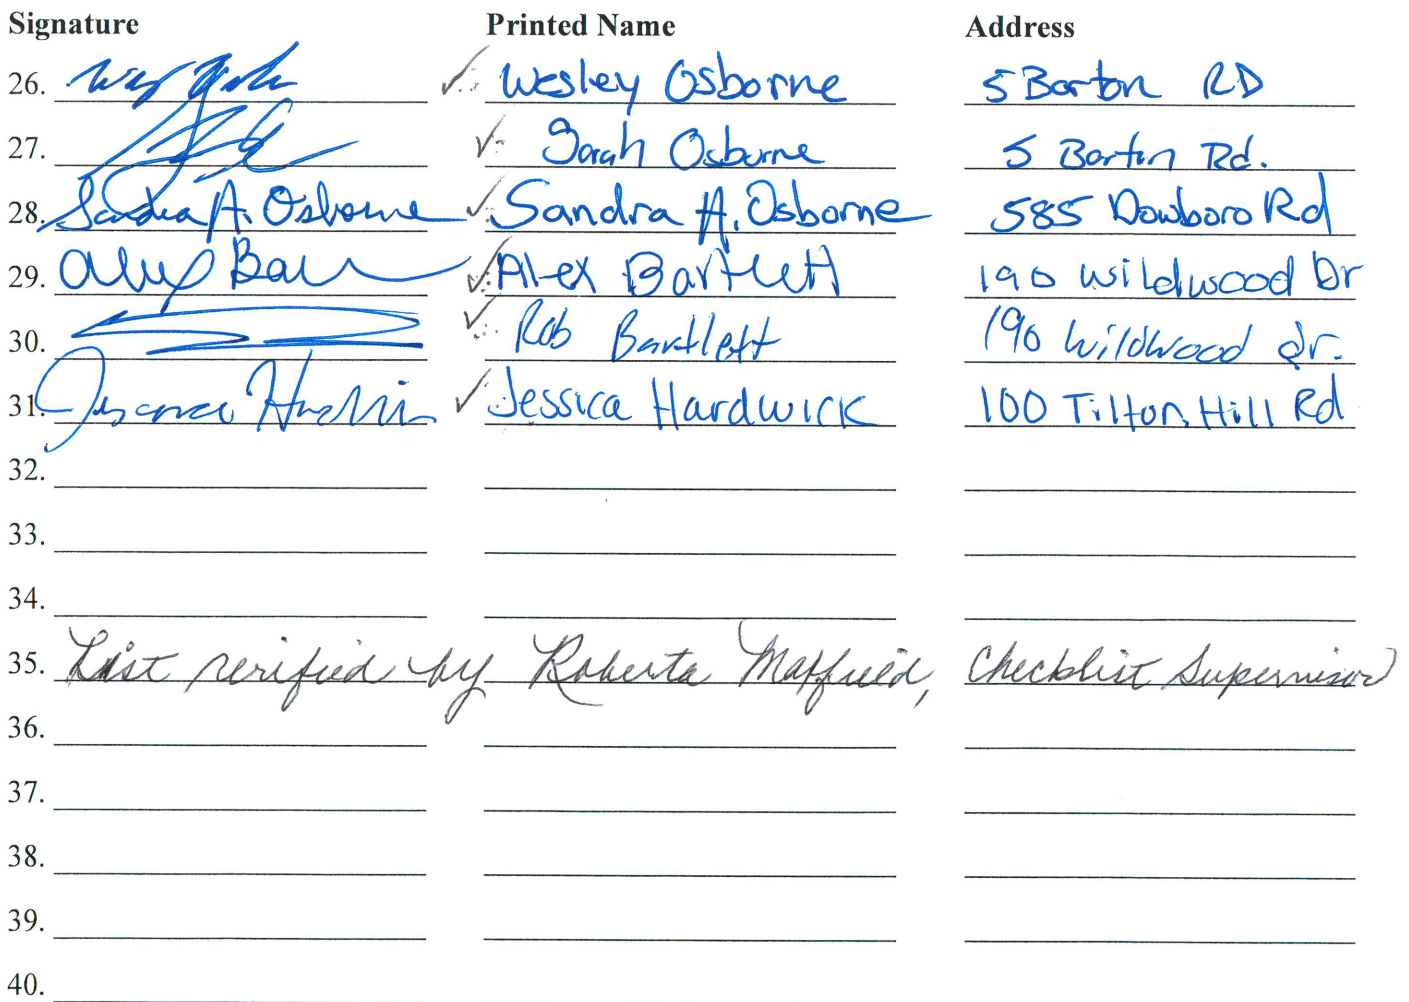 Signature Printed Name Address
26. Wesley Osborne 5 Barton RD
27. Sarah Osborne 5 Barton Rd.
28. Sandra A. Osborne Sandra A. Osborne 585 Dowboro Rd
29. Alex Bartlett 190 Wildwood Dr
30. Rob Bartlett 190 Wildwood dr.
31. Jessica Hardwick 100 Tilton Hill Rd
32.
33.
34.
35. List verified by Roberta Checklist Supervisor
36.
37.
38.
39.
40.